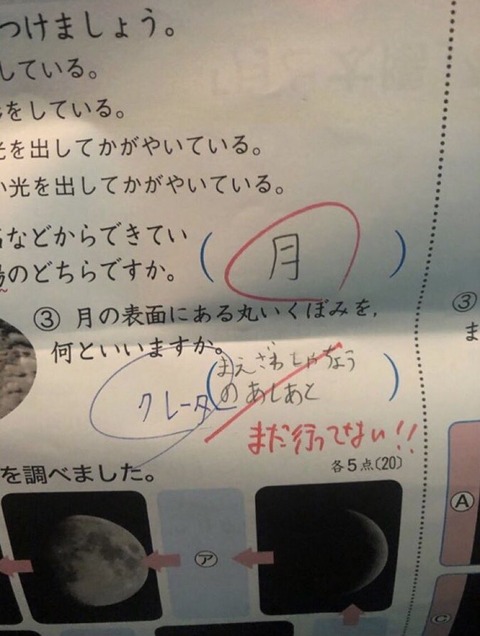 つけましょう。
している。
をしている。
を出してかがやいている。
い光を出してかがやいている。
などからできてい
のどちらですか。
(月)
③ 月の表面にある丸いくぼみを,
何といいますか。
(まえざわしゃちょう
のあしあと)
クレーター
まだ行ってない!!
各5点(20)
を調べました。
㋐
③
ま
Ⓐ
Ⓒ